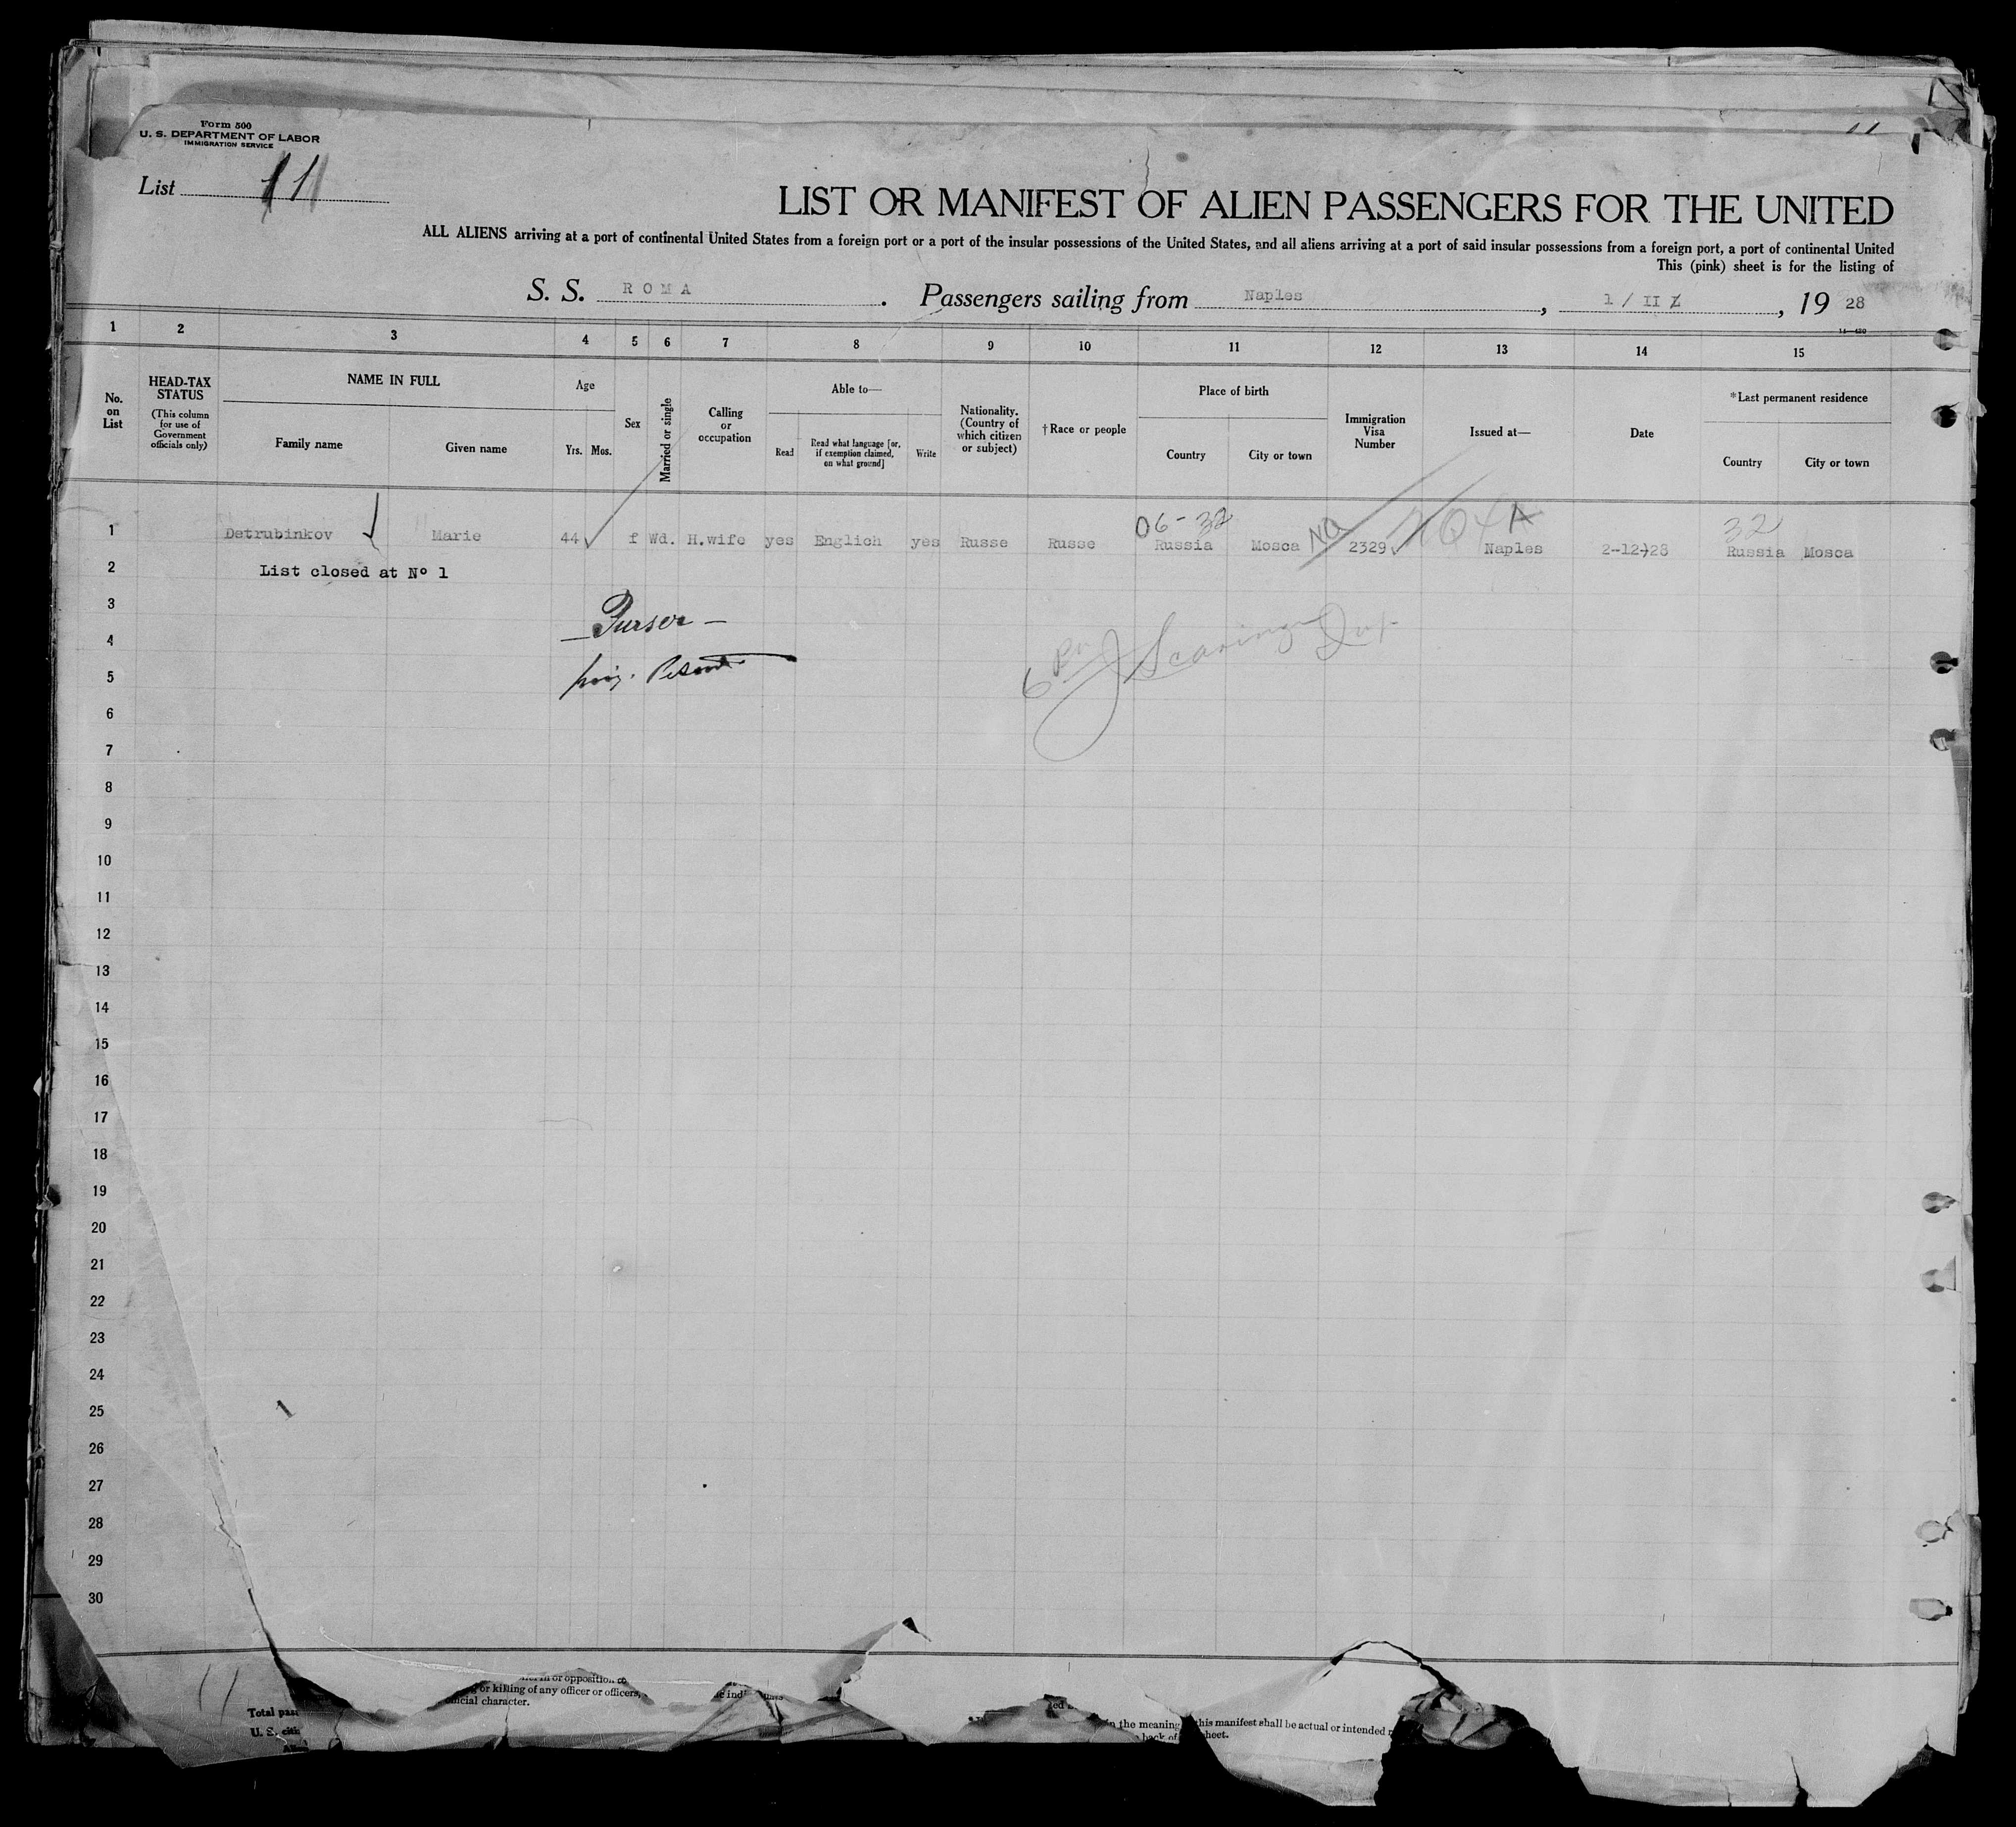 Form 500
U. S. DEPARTMENT OF LABOR
IMMIGRATION SERVICE
List 11
11
LIST OR MANIFEST OF ALIEN PASSENGERS FOR THE UNITED
ALL ALIENS arriving at a port of continental United States from a foreign port or a port of the insular possessions of the United States, and all aliens arriving at a port of said insular possessions from a foreign port, a port of continental United
This (pink) sheet is for the listing of
S. S. ROMA. Passengers sailing from Naples, 1 / II, 1928
1 2 3 4 5 6 7 8 9 10 11 12 13 14 15
No. on List
HEAD-TAX STATUS (This column for use of Government officials only)
NAME IN FULL
Family name Given name
Age
Yrs. Mos.
Sex
Married or single
Calling or occupation
Able to—
Read Read what language [or, if exemption claimed, on what ground] Write
Nationality. (Country of which citizen or subject)
†Race or people
Place of birth
Country City or town
Immigration Visa Number
Issued at—
Date
*Last permanent residence
Country City or town
06-32 NQ A 32
1 Detrubinkov Marie 44 f Wd. H.wife yes Englich yes Russe Russe Russia Mosca 2329 Naples 2-12-28 Russia Mosca
2 List closed at Nº 1
3
— Purser —
4
5
6
7
8
9
10
11
12
13
14
15
16
17
18
19
20
21
22
23
24
25
26
27
28
29
30
11
or opposition
or killing of any officer or officers,
official character.
Total
U. S.
in the meaning this manifest shall be actual or intended
back of sheet.